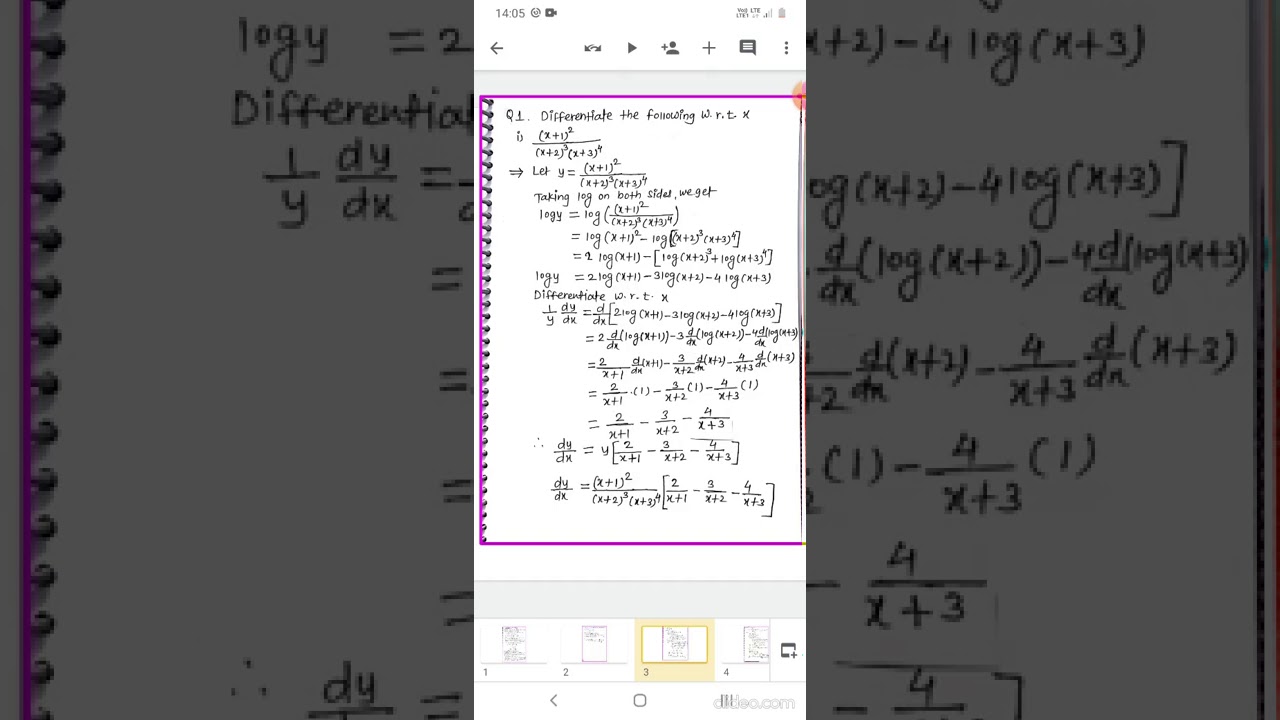 14:05
Q1. Differentiate the following w.r.t. x
i) (x+1)²/(x+2)³(x+3)⁴
⇒ Let y = (x+1)²/(x+2)³(x+3)⁴
Taking log on both sides, we get
logy = log((x+1)²/(x+2)³(x+3)⁴)
= log(x+1)² - log[(x+2)³(x+3)⁴]
= 2 log(x+1) - [log(x+2)³ + log(x+3)⁴]
logy = 2log(x+1) - 3log(x+2) - 4 log(x+3)
Differentiate w.r.t. x
1/y dy/dx = d/dx[2log(x+1) - 3log(x+2) - 4log(x+3)]
= 2 d/dx(log(x+1)) - 3 d/dx(log(x+2)) - 4 d/dx(log(x+3)
= 2/x+1 d/dx(x+1) - 3/x+2 d/dx(x+2) - 4/x+3 d/dx(x+3)
= 2/x+1 .(1) - 3/x+2 (1) - 4/x+3 (1)
= 2/x+1 - 3/x+2 - 4/x+3
∴ dy/dx = y[2/x+1 - 3/x+2 - 4/x+3]
dy/dx = (x+1)²/(x+2)³(x+3)⁴ [2/x+1 - 3/x+2 - 4/x+3]
1 2 3 4
clideo.com